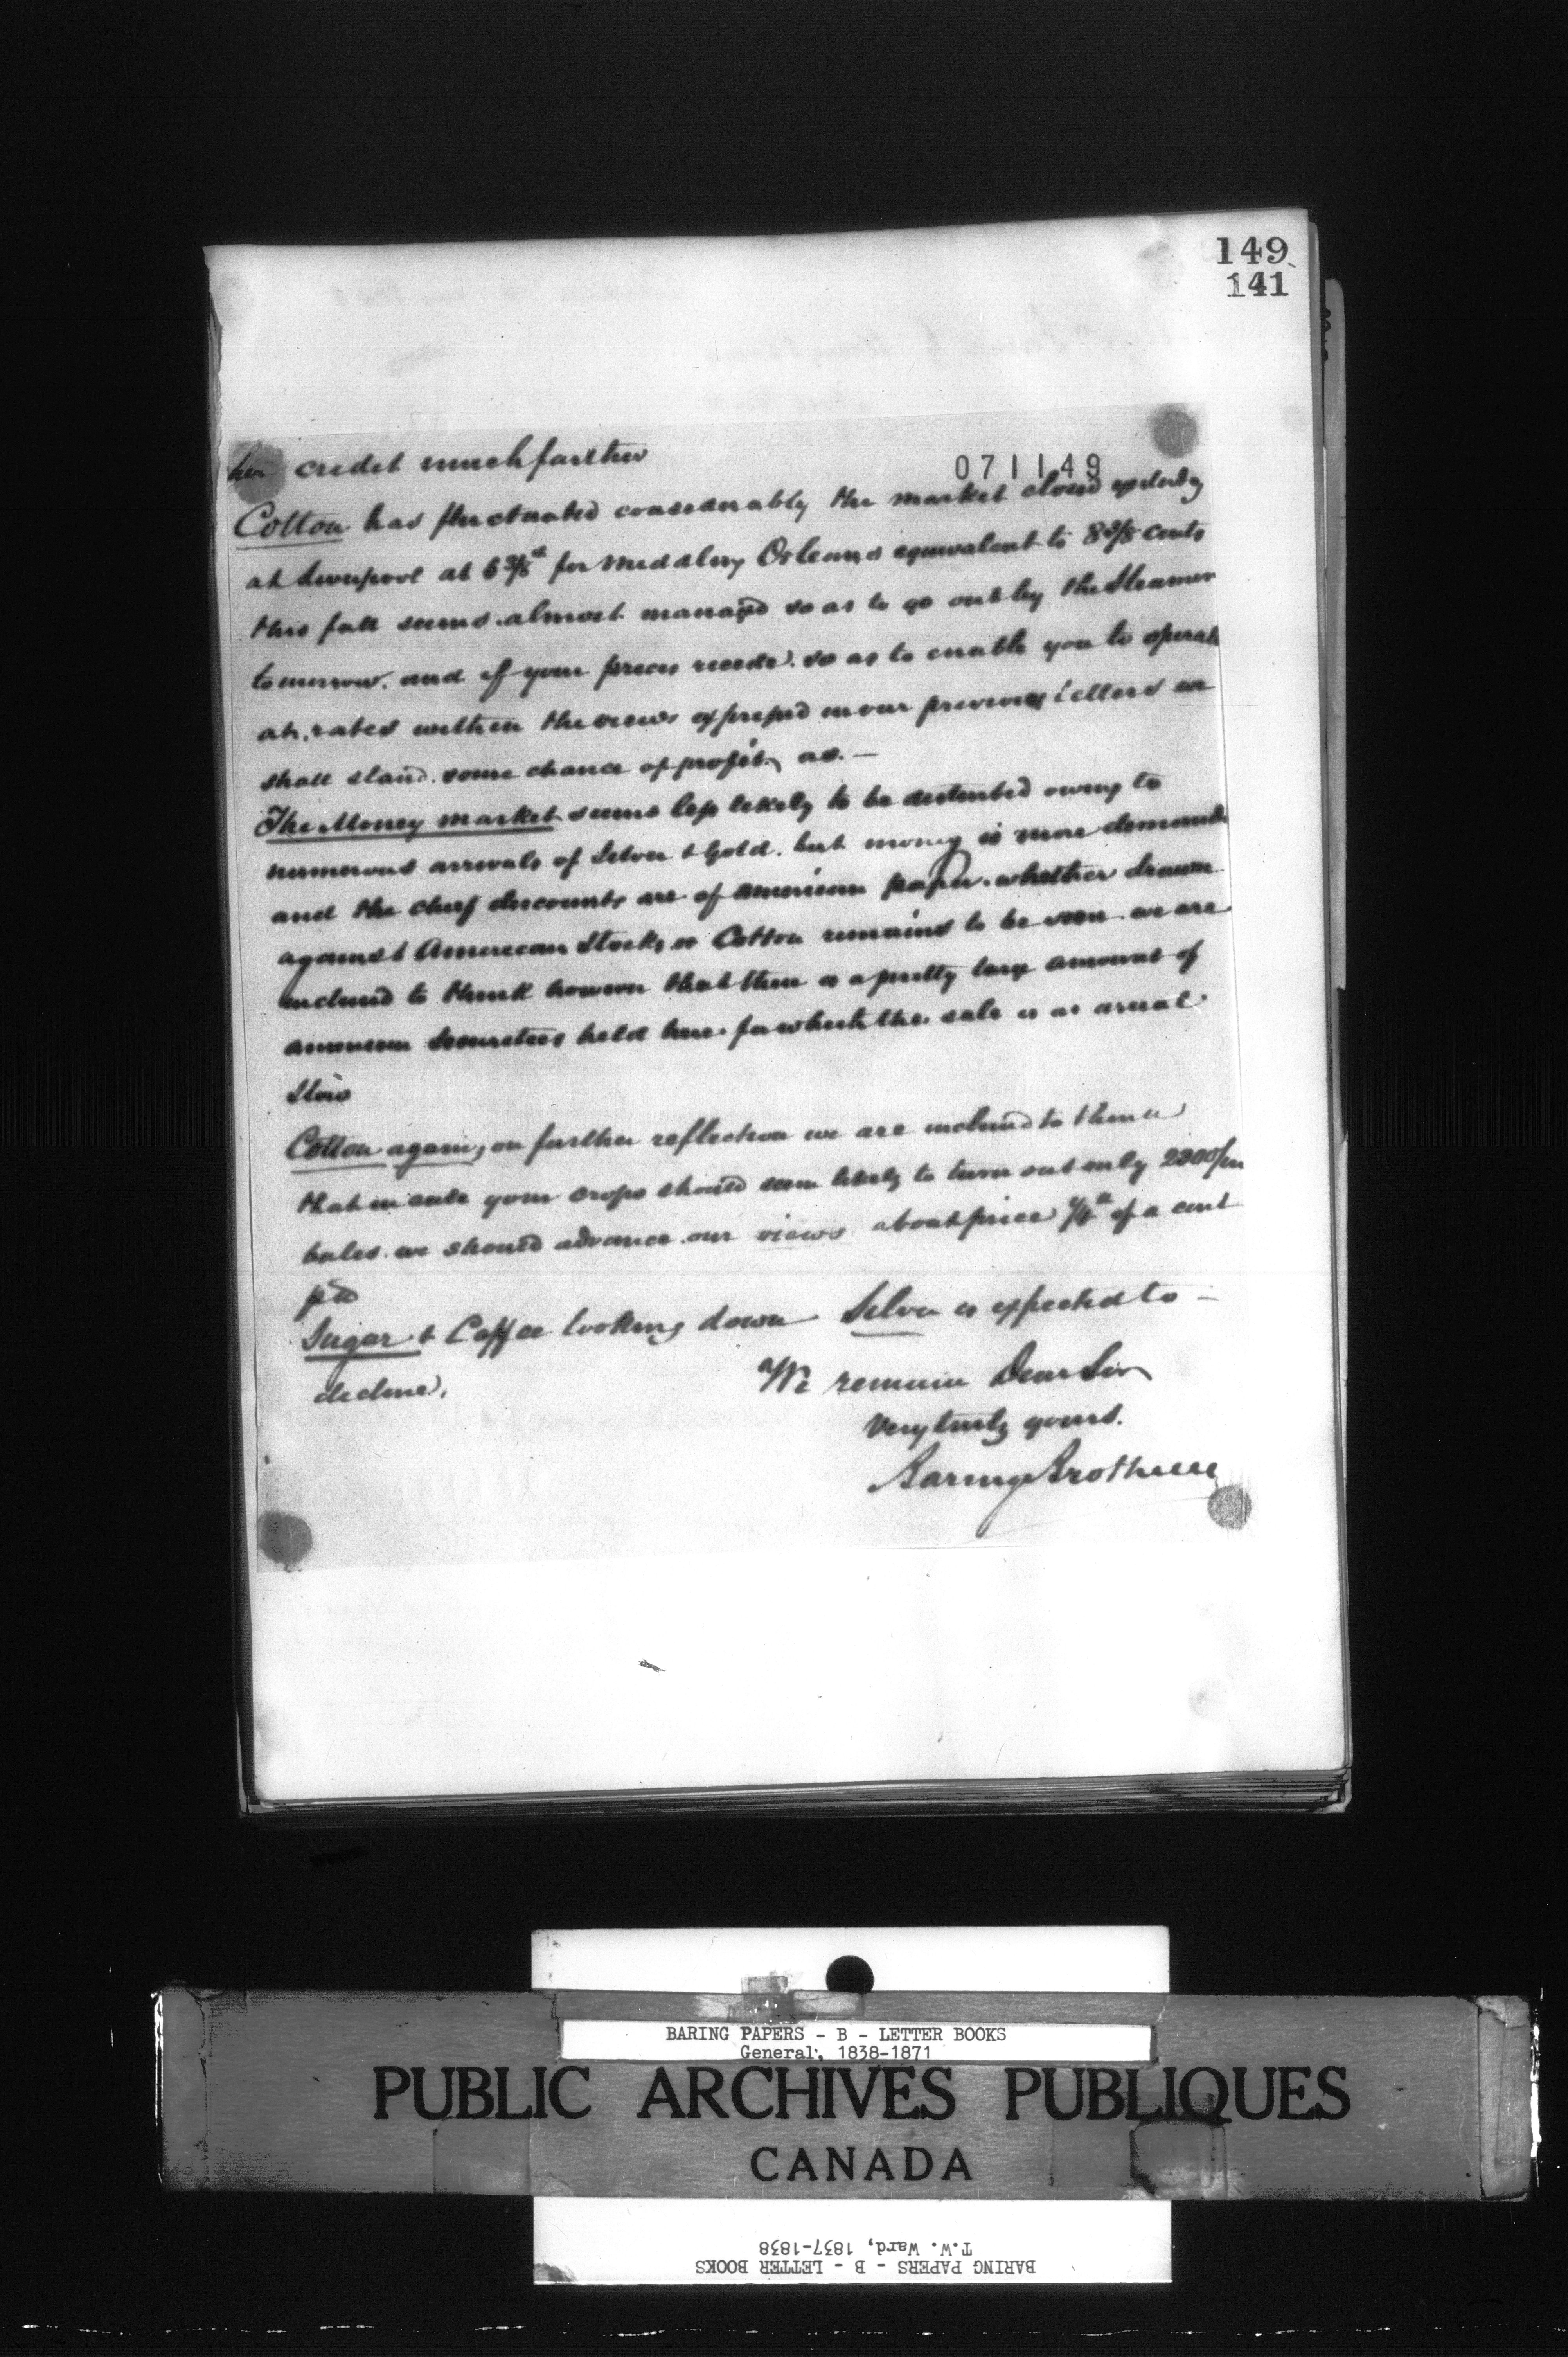 149
141
071149
her credit much farther
Cotton has fluctuated considerably the market closed yesterday
at Liverpool at 6 3/8d for Middling Orleans equivalent to 8 3/8 cents
this fall seems almost managed so as to go out by the Steamer
tomorrow. and if your prices recede. so as to enable you to operate
at rates within the views expressed in our previous letters we
shall stand some chance of profit,
The Money market seems less likely to be disturbed owing to
numerous arrivals of Silver & Gold. but money is more demand
and the chief discounts are of American paper. whether drawn
against American Stocks or Cotton remains to be seen. we are
inclined to think however that there is a pretty large amount of
american Securities held here. for which the sale is as usual
Slow
Cotton again, on further reflection we are inclined to think
that in case your crops should seem likely to turn out only
bales. we should advance our views about price 1/4th of a cent
Sugar & Coffee looking down Silver is expected to -
decline.
We remain Dear Sir
Very truly yours.
Baring Brothers
BARING PAPERS - B - LETTER BOOKS
General, 1838-1871
PUBLIC ARCHIVES PUBLIQUES
CANADA
T.W. Ward, 1837-1838
BARING PAPERS - B - LETTER BOOKS